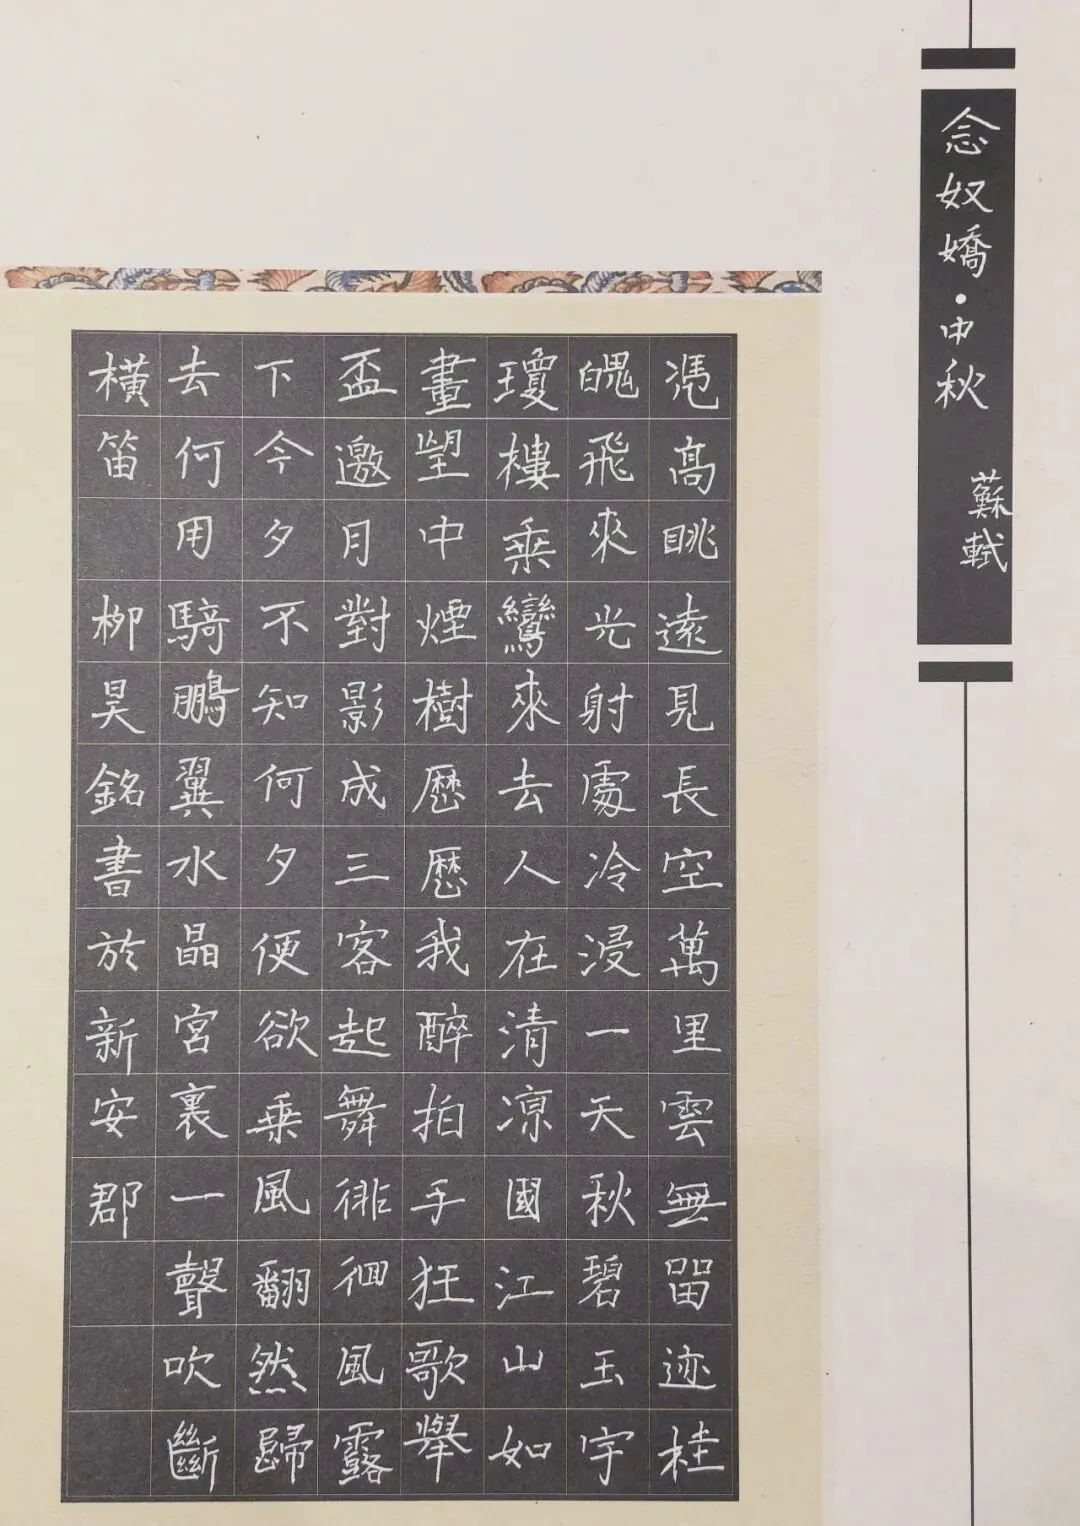 念奴嬌·中秋
蘇軾
凴高眺遠見長空萬里雲無留迹桂
魄飛來光射處冷浸一天秋碧玉宇
瓊樓乘鸞來去人在清凉國江山如
畫望中煙樹歷歷我醉拍手狂歌舉
盃邀月對影成三客起舞徘徊風露
下今夕不知何夕便欲乘風翻然歸
去何用騎鵬翼水晶宮裏一聲吹斷
橫笛 柳昊銘書於新安郡